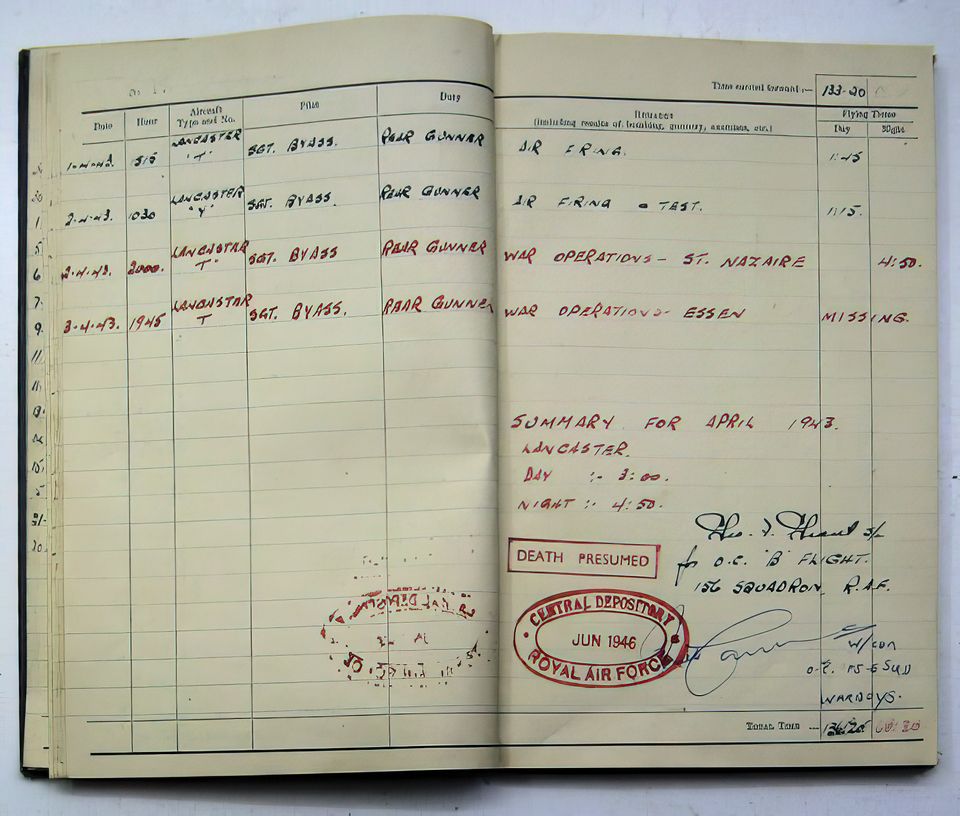 Time carried forward :— 133-20
Date Hour Aircraft Type and No. Pilot Duty Remarks (including results of bombing, gunnery, exercises, etc.) Flying Times
Day Night
1-4-43 1515 LANCASTER "T" SGT. BYASS. REAR GUNNER AIR FIRING. 1:45
2-4-43 1030 LANCASTER "Y" SGT. BYASS. REAR GUNNER AIR FIRING & TEST. 1:15.
2-4-43. 2000. LANCASTER T SGT. BYASS REAR GUNNER WAR OPERATIONS - ST. NAZAIRE 4:50.
3-4-43. 1945 LANCASTER T SGT. BYASS. REAR GUNNER WAR OPERATIONS - ESSEN MISSING.
SUMMARY FOR APRIL 1943.
LANCASTER.
DAY :- 3:00.
NIGHT :- 4:50.
S/L
for O.C. "B" FLIGHT.
156 SQUADRON, R.A.F.
DEATH PRESUMED
CENTRAL DEPOSITORY
JUN 1946
ROYAL AIR FORCE
W/CDR
O.C. 156 SQD
WARBOYS.
Total Time ... 136:20